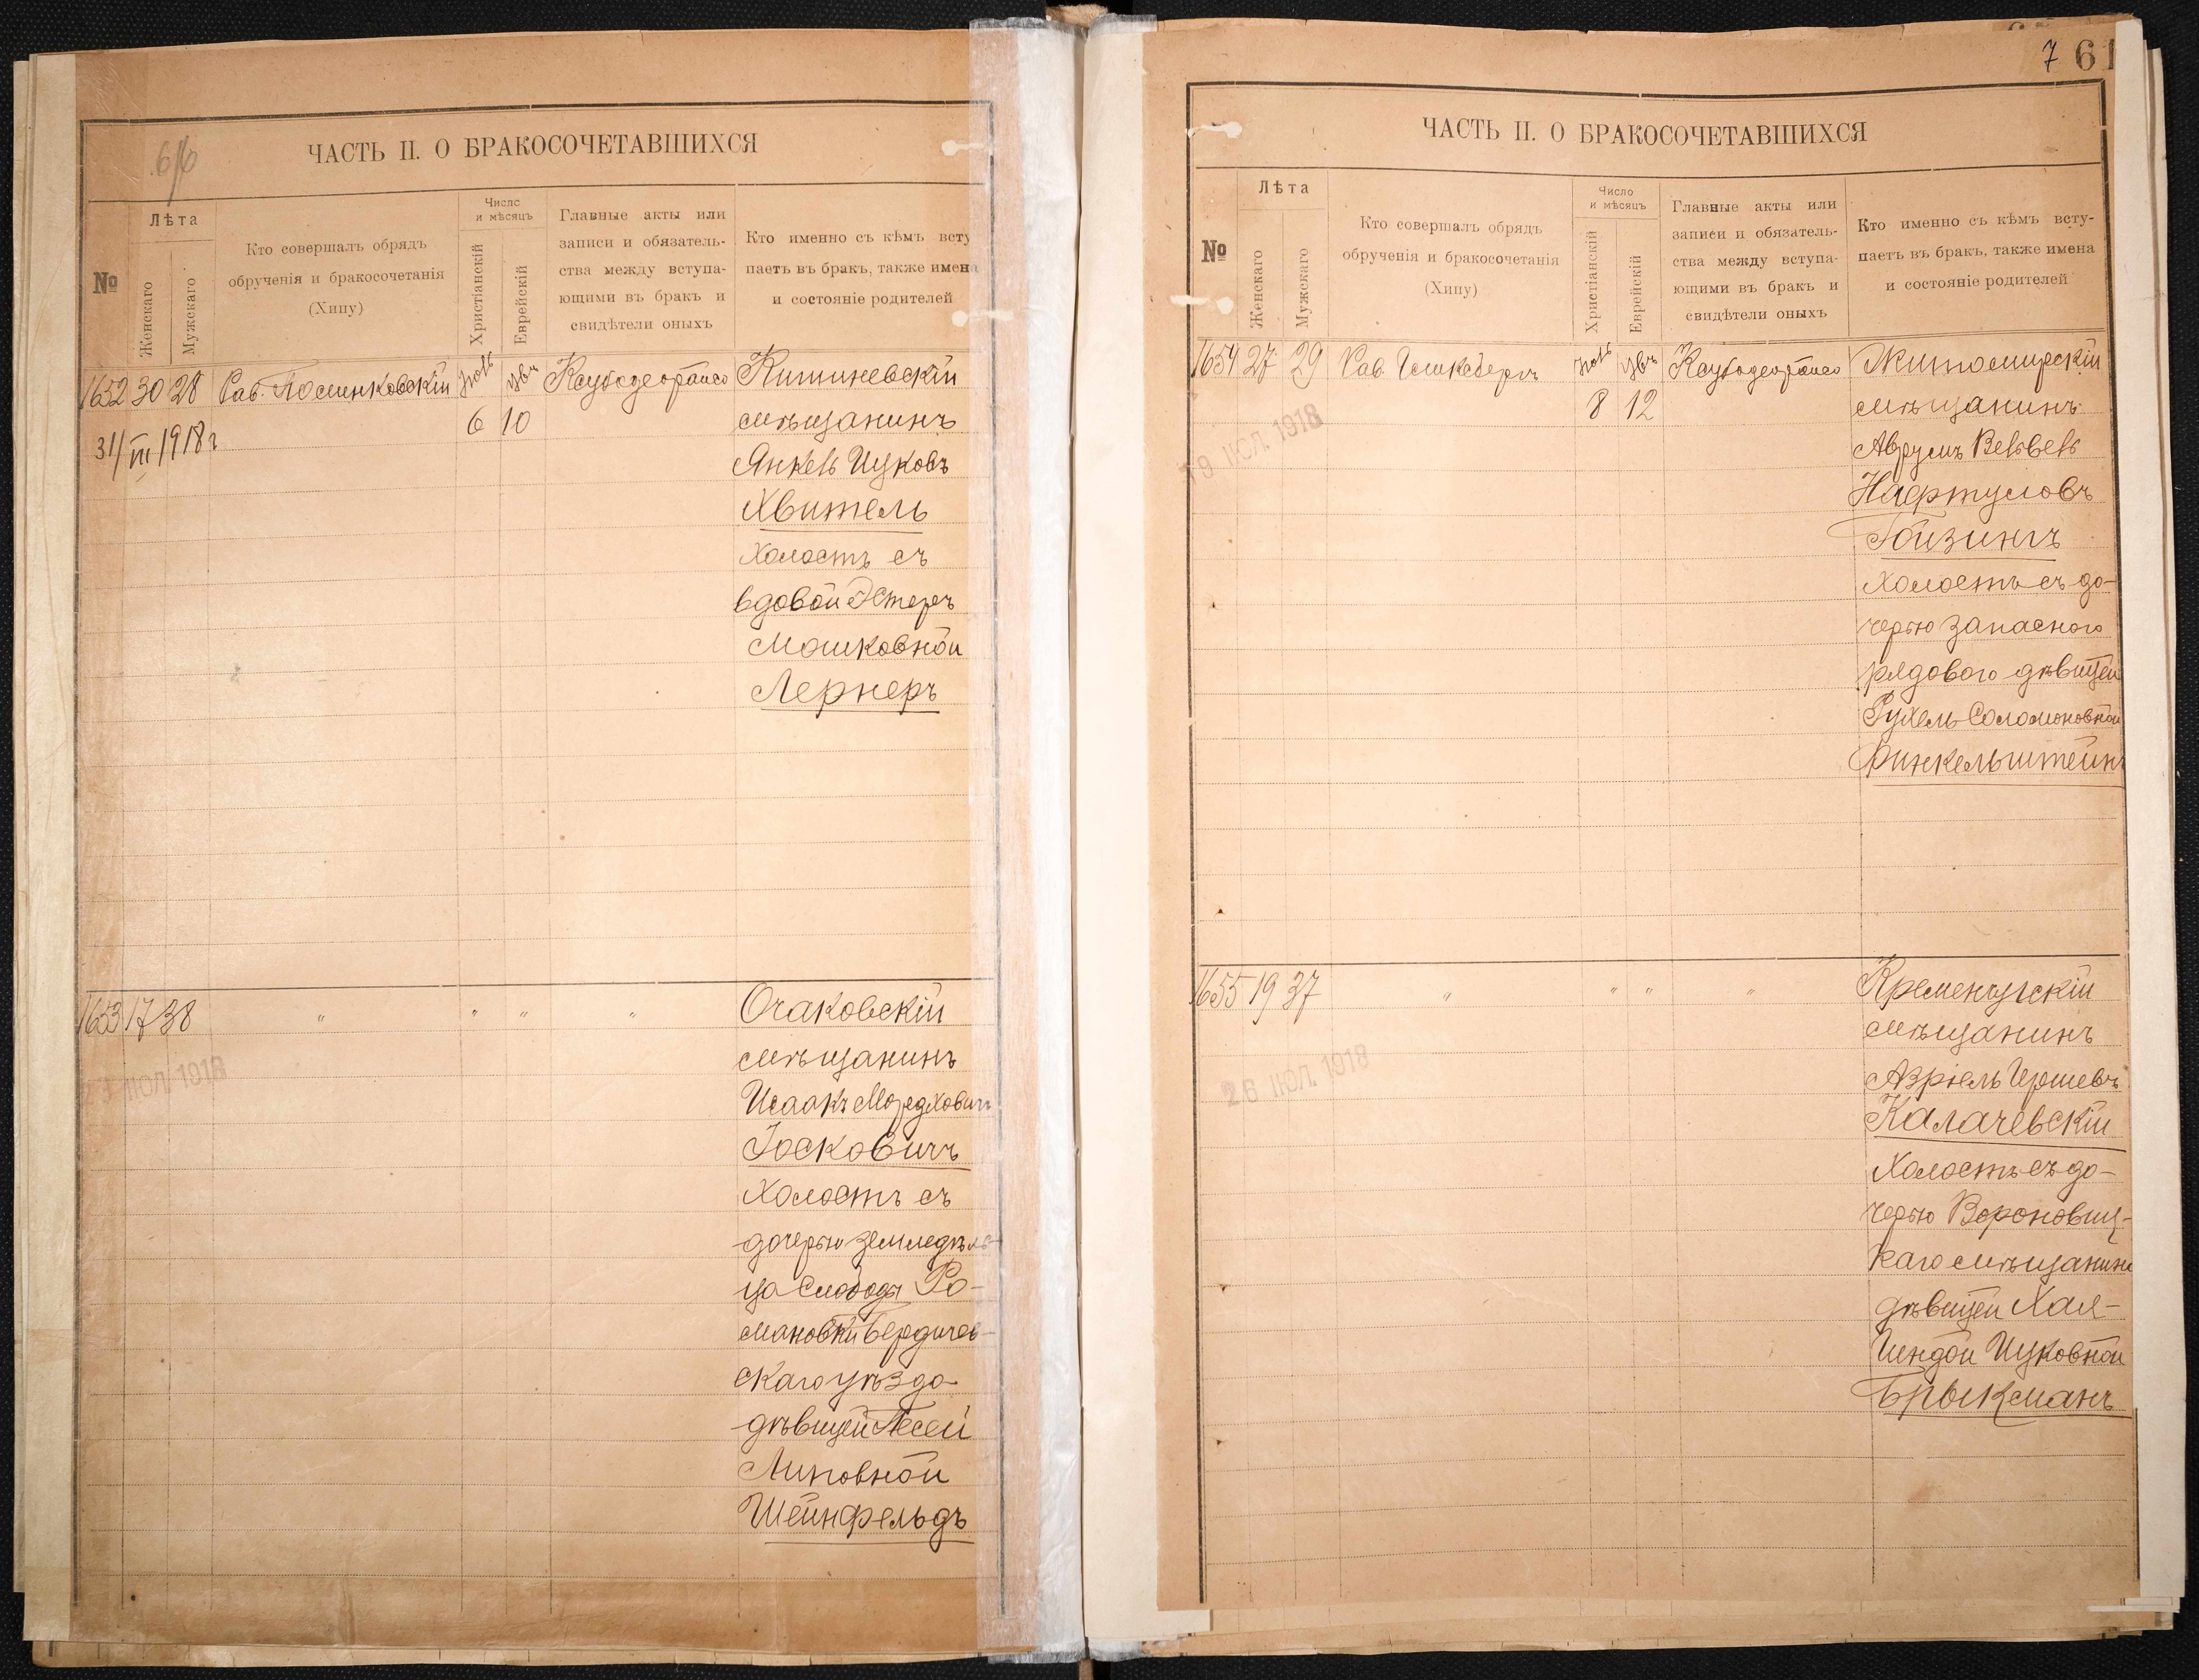 6/6
ЧАСТЬ II. О БРАКОСОЧЕТАВШИХСЯ
№
Лѣта
Женскаго
Мужскаго
Кто совершалъ обрядъ
обрученія и бракосочетанія
(Хипу)
Число
и мѣсяцъ
Христіанскій
Еврейскій
Главные акты или
записи и обязатель-
ства между вступа-
ющими въ бракъ и
свидѣтели оныхъ
Кто именно съ кѣмъ всту
паетъ въ бракъ, также имена
и состояніе родителей
1652 30 28 Рав. Полинковскій
6 10
31/III 1918 г
Кишиневскій
мѣщанинъ
Янкель Ицковъ
Хвитель
холостъ съ
вдовой Эстеръ
Мошковной
Лернеръ
1653 17 38 " " " "
23 ІЮЛ. 1918
Очаковскій
мѣщанинъ
Исаакъ Мордховичъ
Іосковичъ
холостъ съ
дочерью земледѣль-
ца Слободы Ро-
мановки Бердичев-
скаго уѣзда
дѣвицей Песей
Липовной
Шейнфельдъ
7 61
ЧАСТЬ II. О БРАКОСОЧЕТАВШИХСЯ
№
Лѣта
Женскаго
Мужскаго
Кто совершалъ обрядъ
обрученія и бракосочетанія
(Хипу)
Число
и мѣсяцъ
Христіанскій
Еврейскій
Главные акты или
записи и обязатель-
ства между вступа-
ющими въ бракъ и
свидѣтели оныхъ
Кто именно съ кѣмъ всту-
паетъ въ бракъ, также имена
и состояніе родителей
1654 27 29 Рав.
8 12
19 ІЮЛ. 1918
Житомирскій
мѣщанинъ
Аврумъ Вельвель
Нафтуловъ
Гойзингъ
холостъ съ до-
черью запасного
рядового дѣвицей
Рухель Соломоновной
Финкельштейнъ
1655 19 37 " " " "
26 ІЮЛ. 1918
Кременчугскій
мѣщанинъ
Азріель Гершевъ
Калачевскій
холостъ съ до-
черью Вороновиц-
каго мѣщанина
дѣвицей Хая-
Гендой Ицковной
Брыкманъ